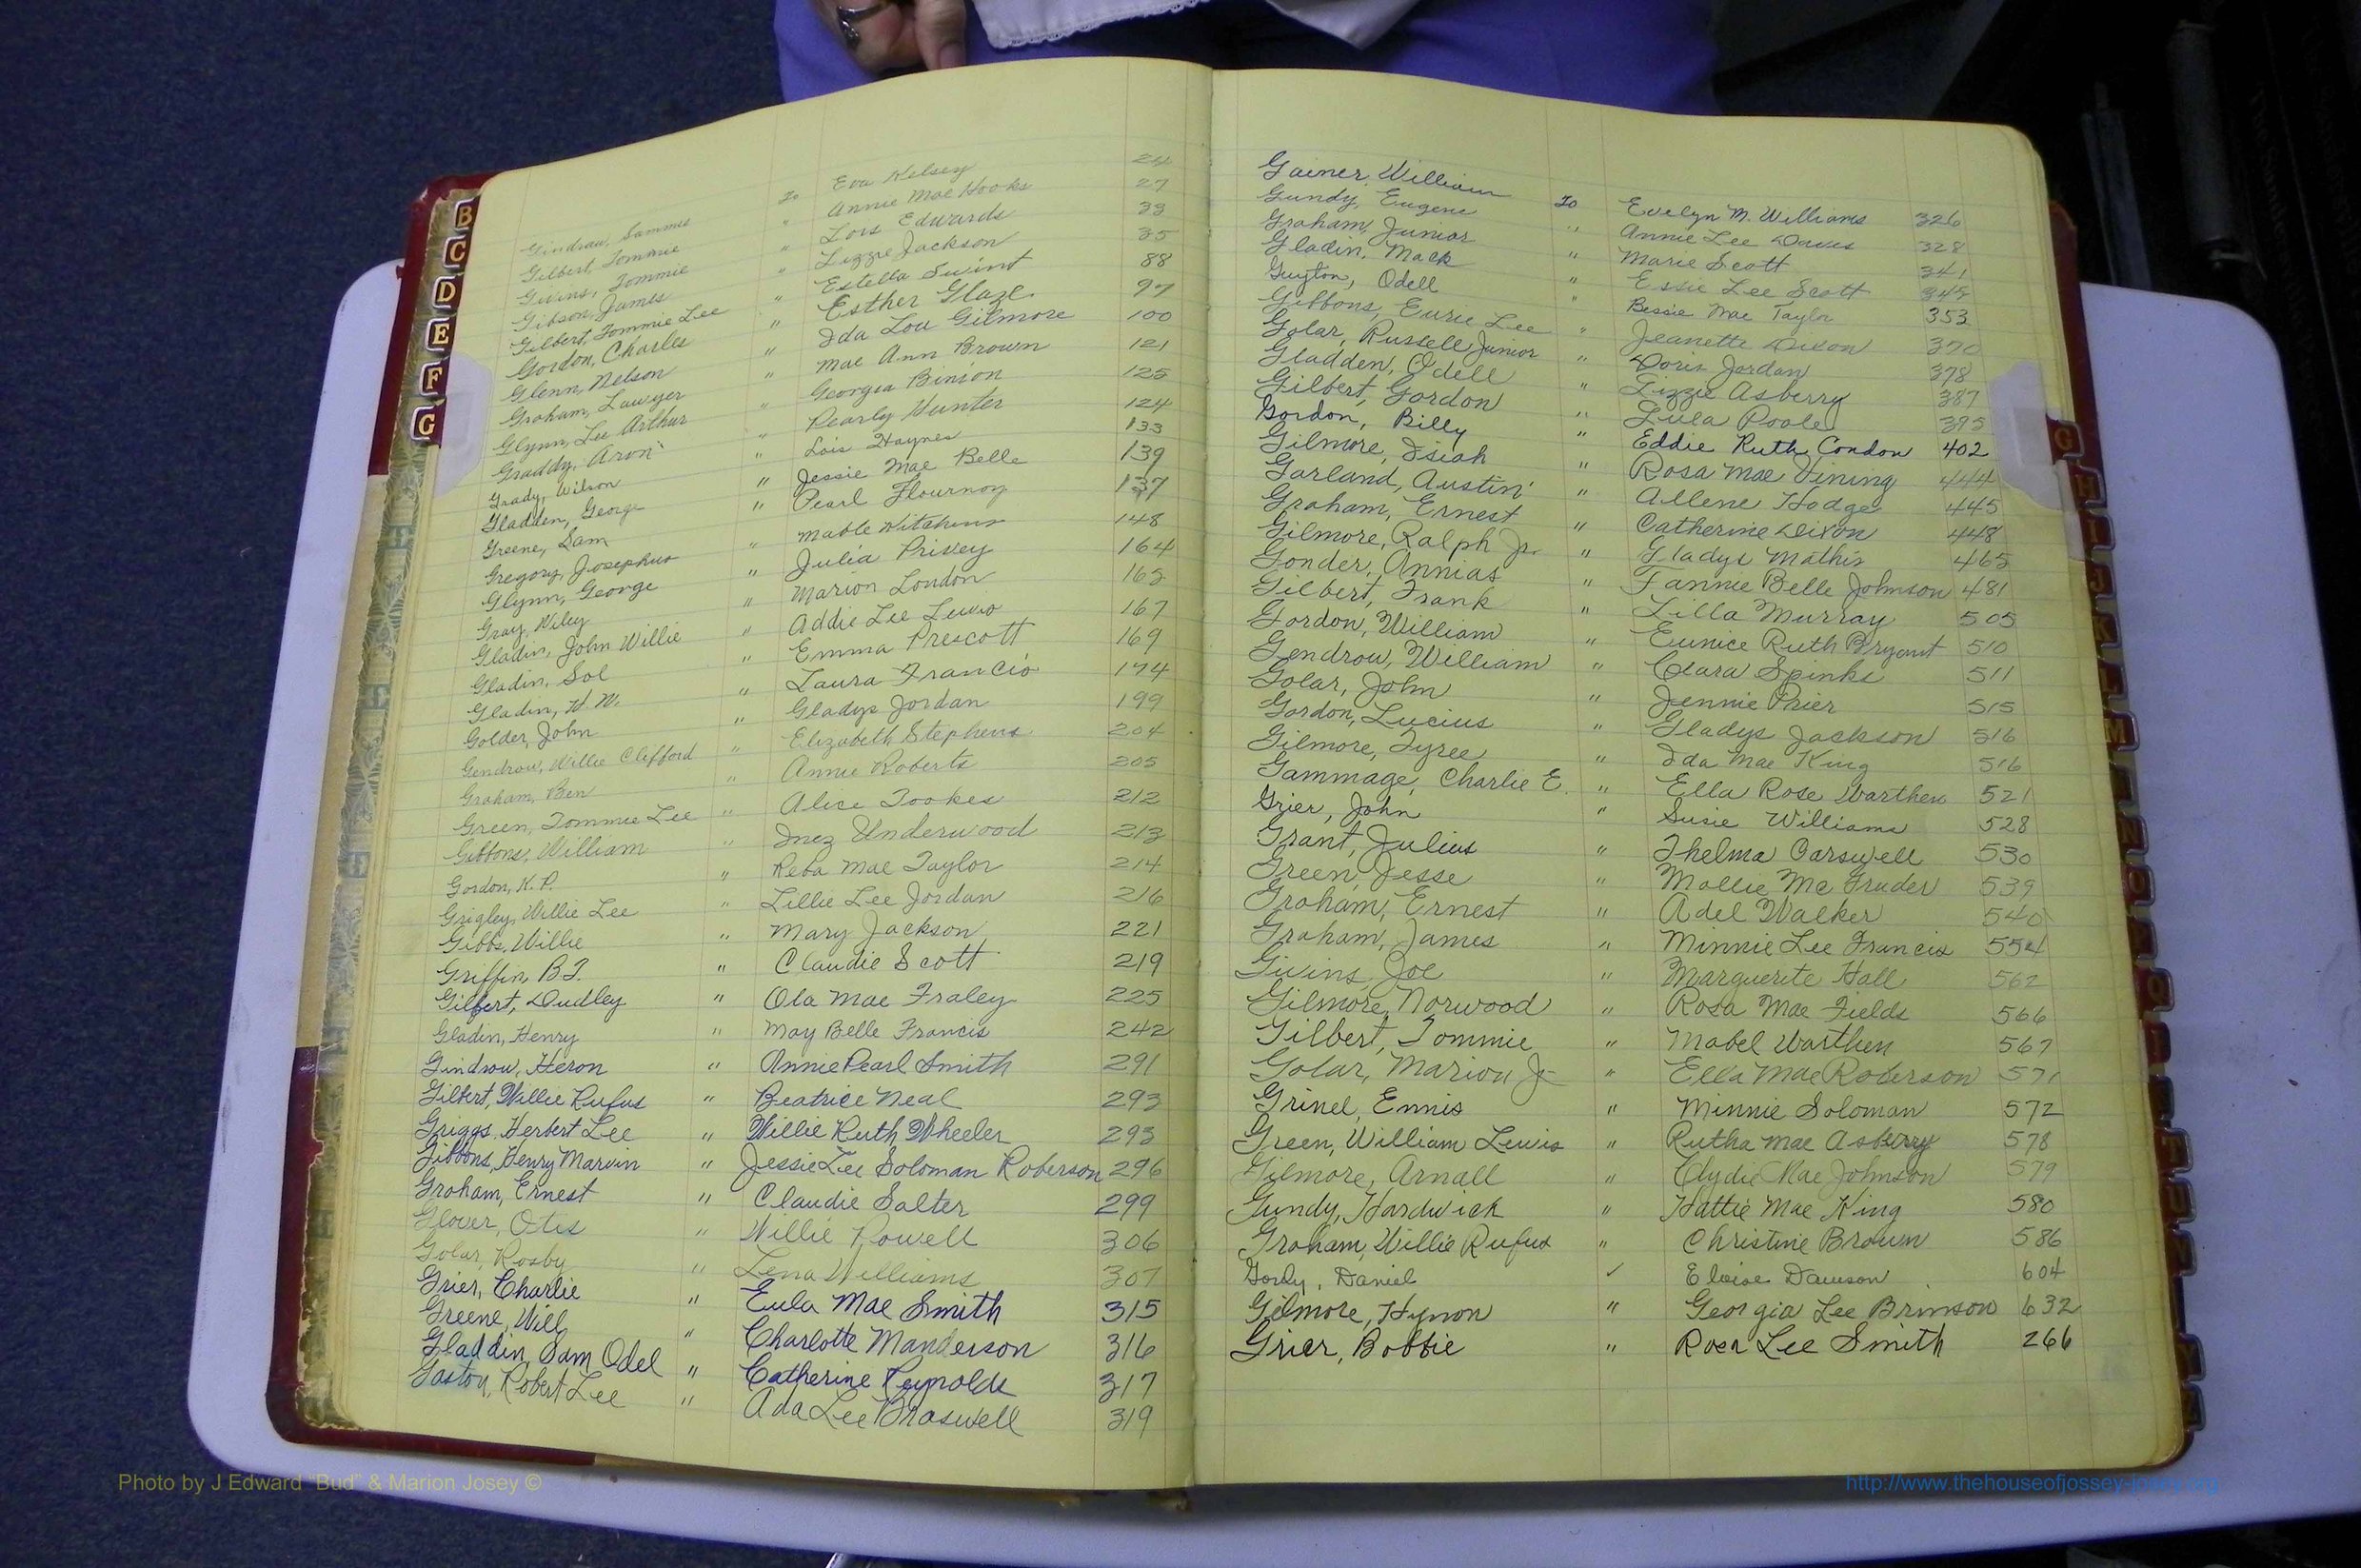 B
C
D
E
F
G
Gindraw, Sammie To Eva Kelsey 24
Gilbert, Tommie " Annie Mae Hooks 27
Givins, Tommie " Lois Edwards 33
Gibson, James " Lizzie Jackson 35
Gilbert, Tommie Lee " Estella Swint 88
Gordon, Charles " Esther Glaze 97
Glenn, Nelson " Ida Lou Gilmore 100
Graham, Lawyer " Mae Ann Brown 121
Glynn, Lee Arthur " Georgia Binion 125
Graddy, Aron " Pearly Hunter 124
Grady, Wilson " Lois Haynes 133
Gladden, George " Jessie Mae Belle 139
Greene, Sam " Pearl Flournoy 137
Gregory, Josephus " Mable Hitchens 148
Glynn, George " Julia Privey 164
Gray, Wiley " Marion London 165
Gladin, John Willie " Addie Lee Lewis 167
Gladin, Sol " Emma Prescott 169
Gladin, H. W. " Laura Francis 174
Golder, John " Gladys Jordan 199
Gendrow, Willie Clifford " Elizabeth Stephens 204
Graham, Ben " Annie Roberts 205
Green, Tommie Lee " Alice Tookes 212
Gibbons, William " Inez Underwood 213
Gordon, K. P. " Reba Mae Taylor 214
Grigley, Willie Lee " Lillie Lee Jordan 216
Gibbs, Willie " Mary Jackson 221
Griffin, B.T. " Claudie Scott 219
Gilbert, Dudley " Ola Mae Fraley 225
Gladin, Henry " May Belle Francis 242
Gindrow, Heron " Annie Pearl Smith 291
Gilbert, Willie Rufus " Beatrice Neal 293
Griggs, Herbert Lee " Willie Ruth Wheeler 293
Gibbons, Henry Marvin " Jessie Lee Soloman Roberson 296
Graham, Ernest " Claudie Salter 299
Glover, Otis " Willie Powell 306
Golar, Rosby " Lena Williams 307
Grier, Charlie " Eula Mae Smith 315
Greene, Will " Charlotte Manderson 316
Gladdin, Sam Odel " Catherine Reynolds 317
Gaston, Robert Lee " Ada Lee Braswell 319
Gainer, William To Evelyn M. Williams 326
Gundy, Eugene " Annie Lee Daves 328
Graham, Junior " Marie Scott 341
Gladin, Mack " Essie Lee Scott 345
Guyton, Odell " Bessie Mae Taylor 353
Gibbons, Eurie Lee " Jeanette Dixon 370
Golar, Russell Junior " Doris Jordan 378
Gladden, Odell " Lizzie Asberry 387
Gilbert, Gordon " Lula Poole 395
Gordon, Billy " Eddie Ruth Condon 402
Gilmore, Isiah " Rosa Mae Vining 444
Garland, Austin " Allene Hodge 445
Graham, Ernest " Catherine Dixon 448
Gilmore, Ralph Jr. " Gladys Mathis 465
Gonder, Annias " Fannie Belle Johnson 481
Gilbert, Frank " Lilla Murray 505
Gordon, William " Eunice Ruth Bryant 510
Gendrow, William " Clara Spinks 511
Golar, John " Jennie Prier 515
Gordon, Lucius " Gladys Jackson 516
Gilmore, Tyree " Ida Mae King 516
Gammage, Charlie E. " Ella Rose Warthen 521
Grier, John " Susie Williams 528
Grant, Julius " Thelma Carswell 530
Green, Jesse " Mollie McGruder 539
Graham, Ernest " Adel Walker 540
Graham, James " Minnie Lee Francis 554
Givins, Joe " Marguerite Hall 562
Gilmore, Norwood " Rosa Mae Fields 566
Gilbert, Tommie " Mabel Warthen 567
Golar, Marion Jr " Ella Mae Roberson 571
Grinel, Ennis " Minnie Soloman 572
Green, William Lewis " Rutha Mae Asberry 578
Gilmore, Arnall " Clydie Mae Johnson 579
Gundy, Hardwick " Hattie Mae King 580
Graham, Willie Rufus " Christine Brown 586
Gordy, Daniel ✓ Eloise Dawson 604
Gilmore, Hymon " Georgia Lee Brinson 632
Grier, Bobbie " Rosa Lee Smith 266
Photo by J Edward "Bud" & Marion Josey ©